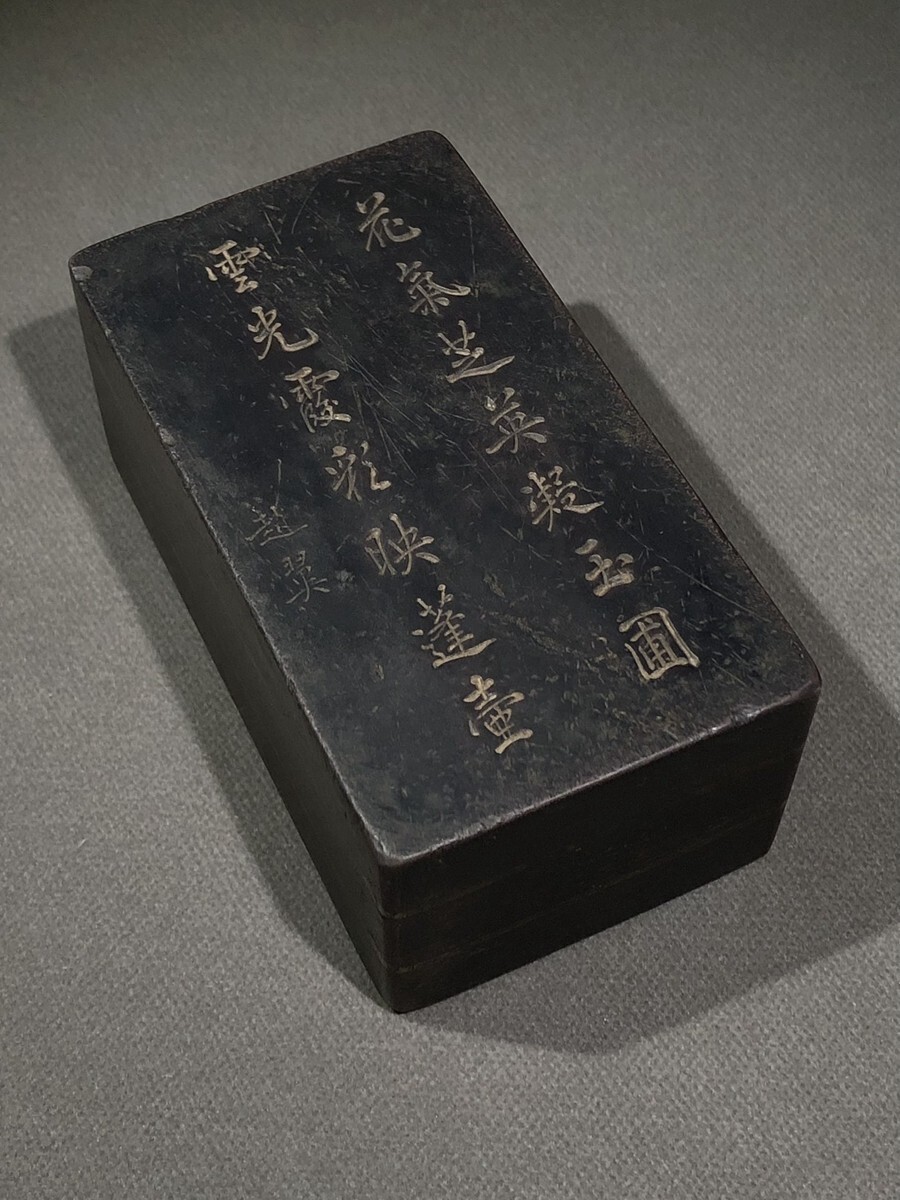 花氣芝英凝玉圃
雲光霞彩映蓬壺
趙翼